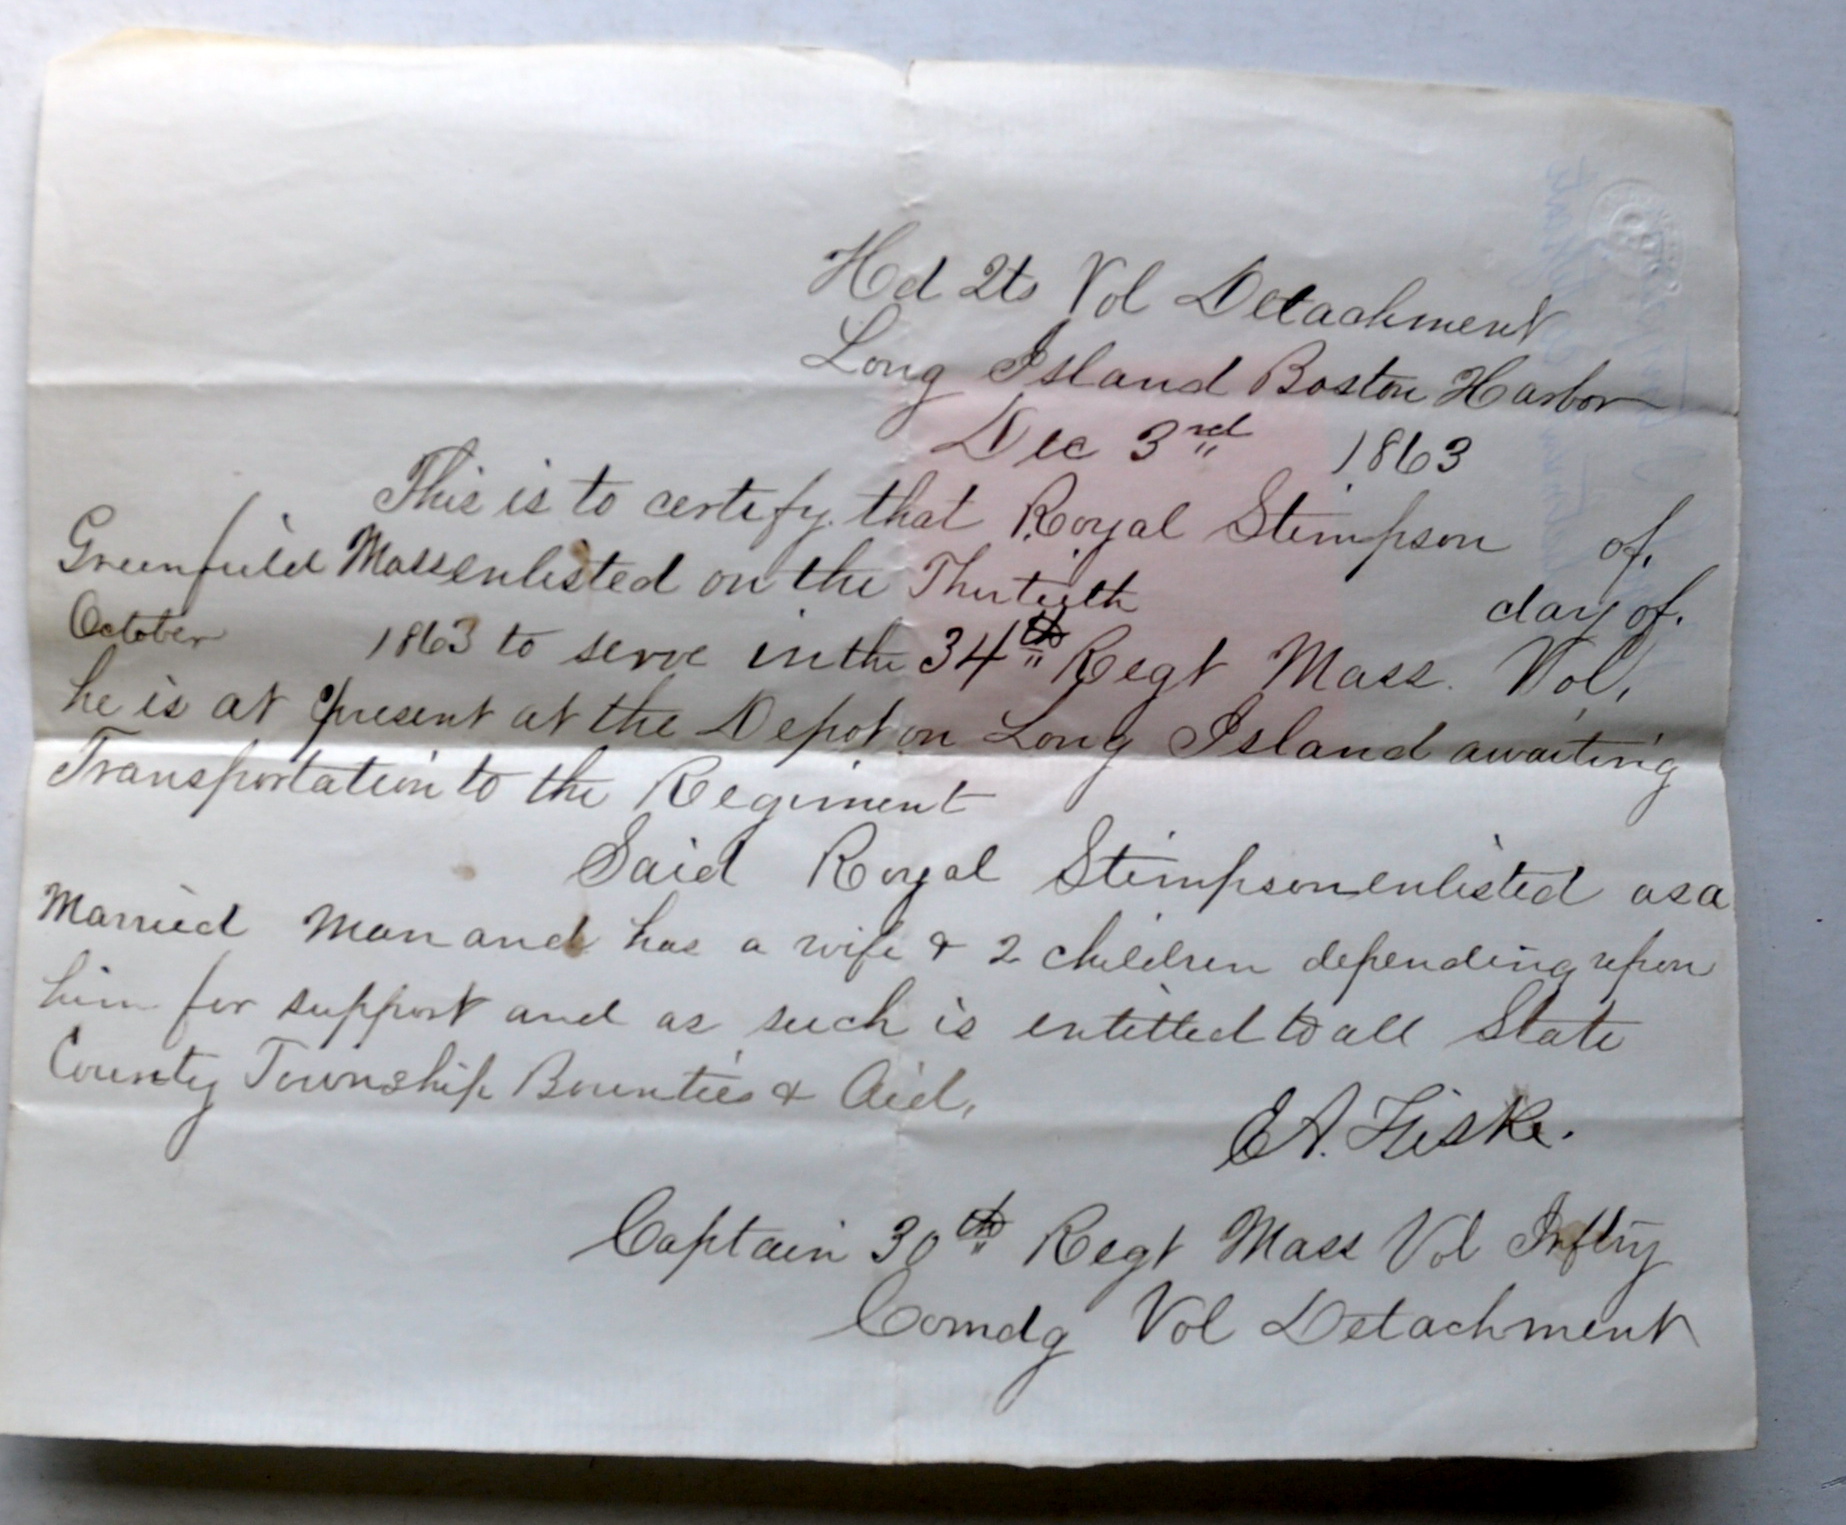 Hd Qts Vol Detachment
Long Island Boston Harbor
Dec 3rd 1863
This is to certify that Royal Stimpson of.
Greenfield Mass enlisted on the Thirtieth day of.
October 1863 to serve in the 34th Regt Mass. Vol,
he is at present at the Depot on Long Island awaiting
Transportation to the Regiment
Said Royal Stimpson enlisted as a
Married Man and has a wife & 2 children depending upon
him for support and as such is entitled to all State
County Township Bounties & Aid,
EA. Fiske.
Captain 30th Regt Mass Vol Inftry
Comdg Vol Detachment